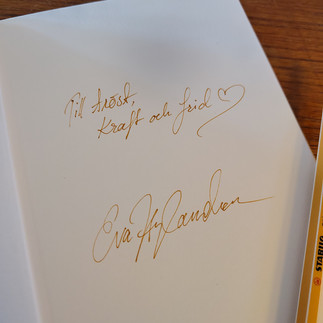 Till tröst,
Kraft och frid
Eva
STABILO